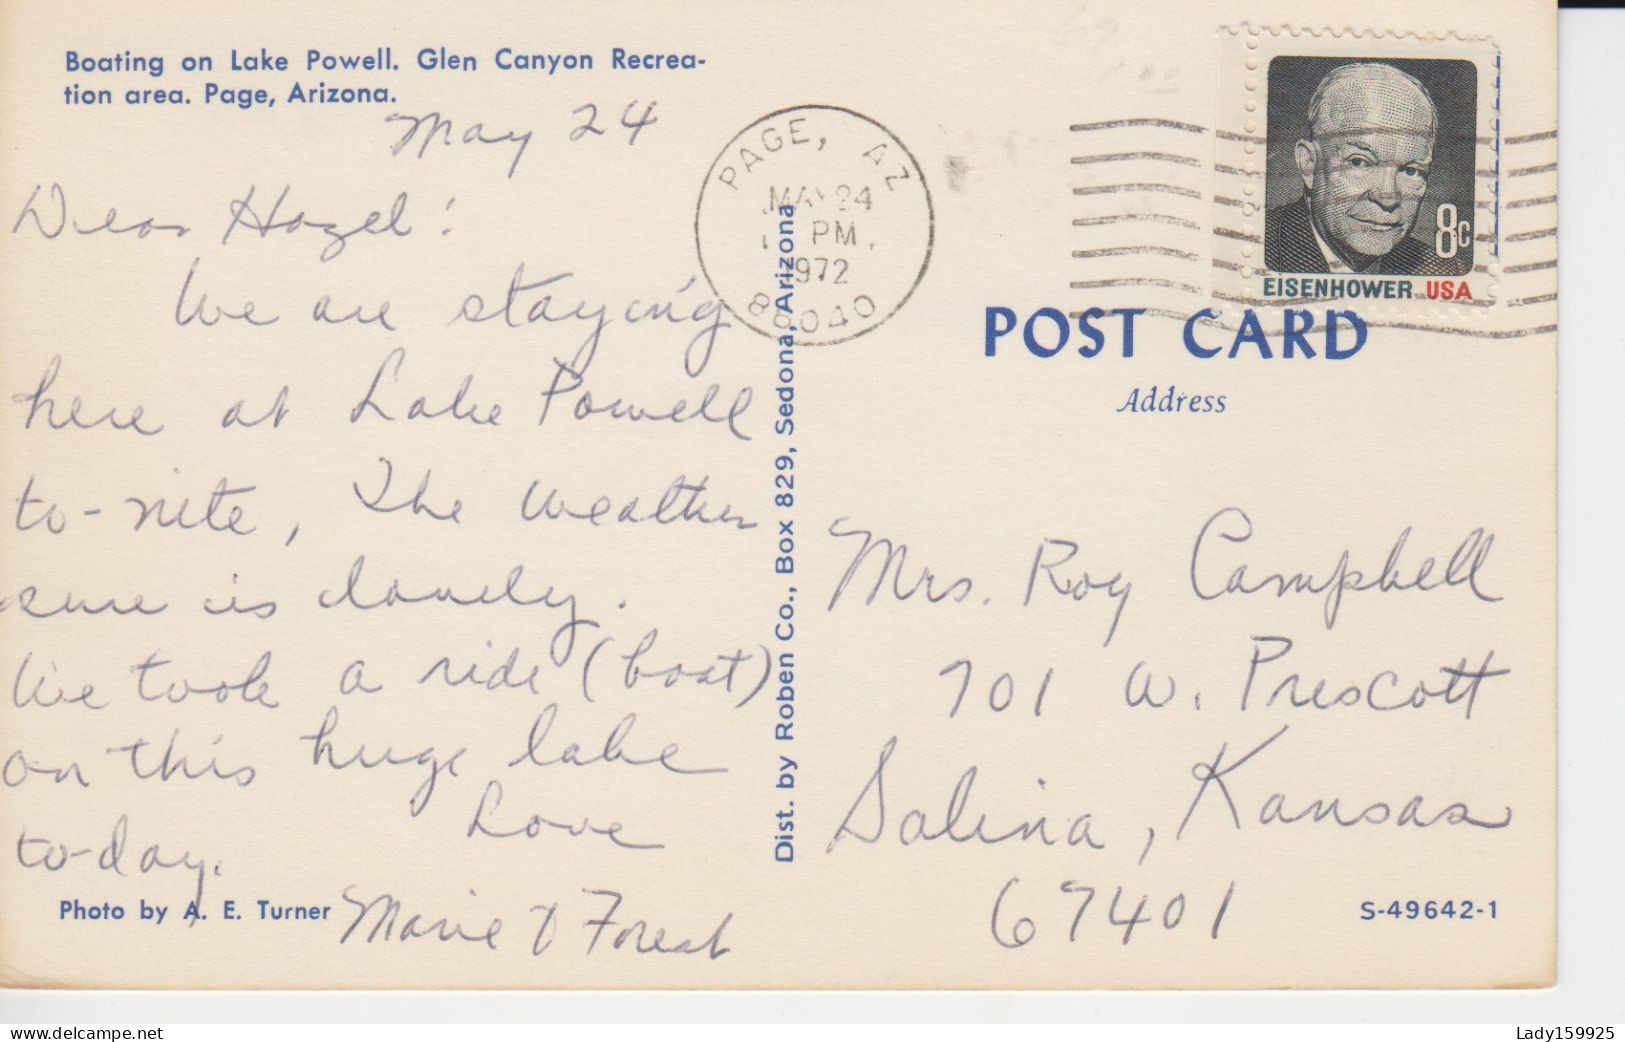 Boating on Lake Powell. Glen Canyon Recrea-
tion area. Page, Arizona.
May 24
Dear Hazel:
We are staying
here at Lake Powell
to-nite, The weather
sure is lovely.
We took a ride (boat)
on this huge lake
to-day.
Love
Marie & Forest
Photo by A. E. Turner
Dist. by Roben Co., Box 829, Sedona, Arizona
PAGE, AZ
MAY 24
PM
1972
86040
8c
EISENHOWER USA
POST CARD
Address
Mrs. Roy Campbell
701 W. Prescott
Salina, Kansas
67401
S-49642-1
www.delcampe.net
Lady159925